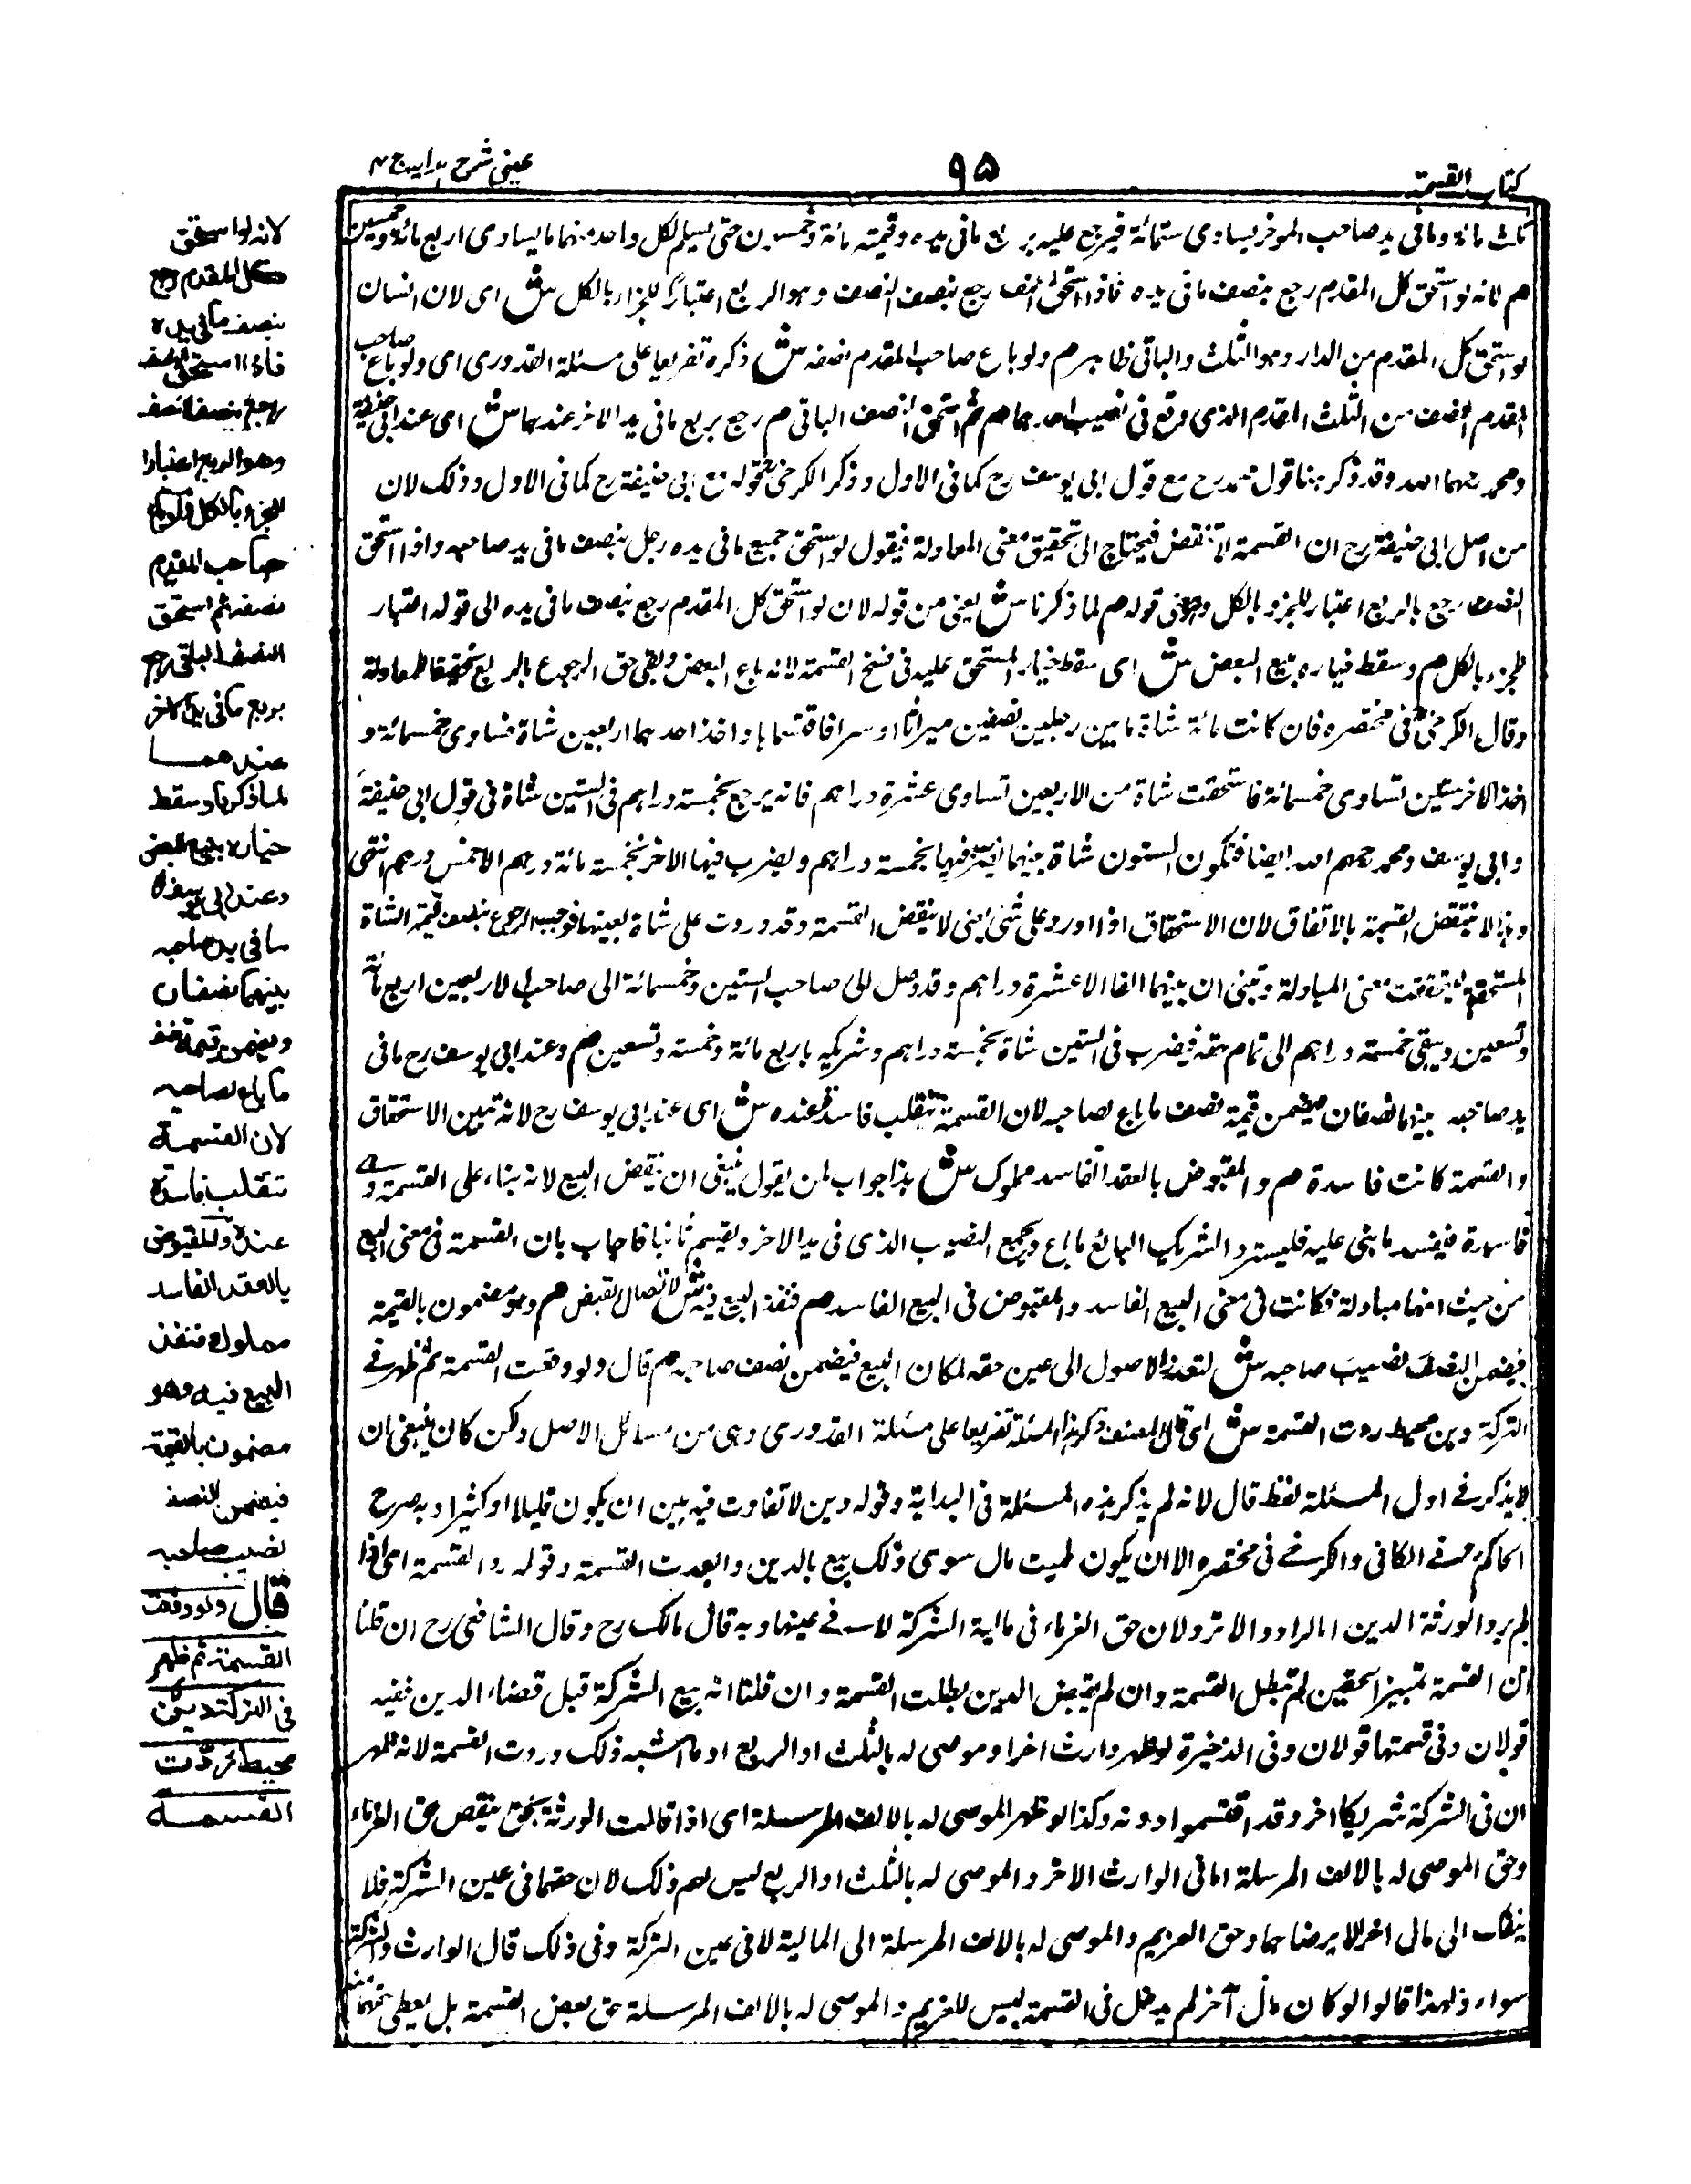 كتاب القسمة
٩٥
عينى شرح هدايه ج ٣
ثلث مائة ومافى يد صاحب الموخر يساوى ستمائة فيرجع عليه بربع مافى يده وقيمته مائة وخمسون حتى يسلم لكل واحد منهما مايساوى اربع مائة وخمسين
م لانه لو استحق كل المقدم رجع بنصف مافى يده فاذا استحق النصف رجع بنصف النصف وهو الربع اعتبارا للجزء بالكل ش اى لان انسان
لو استحق كل المقدم من الدار وهو الثلث والباقى ظاهر م ولو باع صاحب المقدم نصفه ش ذكره تفريعا على مسئلة القدورى اى ولو باع صاحب
المقدم النصف من الثلث المقدم الذى وقع فى نصيب احدهما م ثم استحق النصف الباقى م رجع بربع مافى يد الاخر عندهما ش اى عند ابى حنيفة
ومحمد رحمهما الله وقد ذكر هنا قول محمد رح مع قول ابى يوسف رح كما فى الاول وذكر الكرخى قوله مع ابى حنيفة رح كما فى الاول وذلك لان
من اصل ابى حنيفة رح ان القسمة لا تنقض فيحتاج الى تحقيق معنى المعادلة فيقول لو استحق جميع مافى يده رجل بنصف مافى يد صاحبه واذا استحق
النصف رجع بالربع اعتبار للجزو بالكل وهو معنى قوله م لما ذكرنا ش يعنى من قوله لان لو استحق كل المقدم رجع بنصف مافى يده الى قوله اعتبار
للجزء بالكل م وسقط خياره ببيع البعض ش اى سقط خيار المستحق عليه فى فسخ القسمة لانه باع البعض وبقى حق الرجوع بالربع تحقيقا للمعادلة
وقال الكرخى فى مختصره فان كانت مائة شاة مابين رجلين نصفين ميراثا او شراء فاقتسماها واخذ احدهما اربعين شاة تساوى خمسمائة و
اخذ الاخر ستين تساوى خمسائة فاستحقت شاة من الاربعين تساوى عشرة دراهم فانه يرجع بخمسة دراهم فى الستين شاة فى قول ابى حنيفة
وابى يوسف ومحمد رحمهم الله ايضا فتكون الستون شاة بينهما يضرب فيها بخمسة دراهم ويضرب فيها الاخر بخمسة مائة درهم الا خمس درهم انتهى
وهذا لا تنتقض القسمة بالاتفاق لان الاستحقاق اذا ورد على شئ بعينه لا ينقض القسمة وقد وردت على شاة بعينها فوجب الرجوع بنصف قيمة الشاة
المستحقة ليتحقق معنى المبادلة وتبنى ان بينهما الفا الا عشرة دراهم وقد وصل الى صاحب الستين وخمسمائة الى صاحب الاربعين اربع مائة
وتسعين ويبقى خمسة دراهم الى تمام حقه فيضرب فى الستين شاة بخمسة دراهم وشريكه باربع مائة وخمسة وتسعين م وعند ابى يوسف رح مافى
يد صاحبه بينهما نصفان ويضمن قيمة نصف ما باع لصاحبه لان القسمة تنقلب فاسدة عنده ش اى عند ابى يوسف رح لانه تبين الاستحقاق
والقسمة كانت فاسدة م والمقبوض بالعقد الفاسد مملوك ش هذا جواب لمن يقول ينبغى ان ينقض البيع لانه بناء على القسمة وهى
فاسدة فيفسد ما بنى عليه فليسترد الشريك البائع ما باع ويجمع النصيب الذى فى يد الاخر ويقسم ثانيا فاجاب بان القسمة فى معنى البيع
من حيث انها مبادلة فكانت فى معنى البيع الفاسد والمقبوض فى البيع الفاسد م فنفذ البيع فيه ش لاتصال القبض م وهو مضمون بالقيمة
فيضمن النصف نصيب صاحبه ش لتعذر الاصول الى عين حقه لمكان البيع فيضمن نصف صاحبه م قال ولو وقعت القسمة ثم ظهر فى
التركة دين محيط ردت القسمة ش اى قال المصنف ذكر هذه المسئلة تفريعا على مسئلة القدورى وهى من مسائل الاصل ولكن كان ينبغى ان
لا يذكر فى اول المسئلة لفظ قال لانه لم يذكر هذه المسئلة فى البداية وقوله دين لا تفاوت فيه بين ان يكون قليلا او كثيرا وبه صرح
الحاكم فى الكافى والكرخى فى مختصره الا ان يكون للميت مال سوى ذلك بيع بالدين وابعدت القسمة وقوله رد القسمة اى اذا
لم يرد الورثة الدين لان حق الغرماء فى مالية التركة لا فى عينها وبه قال مالك رح وقال الشافعى رح ان قلنا
ان القسمة تمييز الحقين لم تبطل القسمة وان لم يقبض الدين بطلت القسمة وان قلنا انه بيع التركة قبل قضاء الدين ففيه
قولان وفى قسمتها قولان وفى الذخيرة لو ظهر وارث اخر او موصى له بالثلث او الربع او ما اشبه ذلك وردت القسمة لانه ظهر
ان فى التركة شريكا اخر وقد اقتسموا دونه وكذا لو ظهر الموصى له بالالف المرسلة اى اذا قالت الورثة نحن ننقص حق الغرماء
وحق الموصى له بالالف المرسلة اما فى الوارث الاخر والموصى له بالثلث او الربع ليس لهم ذلك لان حقهما فى عين التركة فلا
ينقك الى مال اخر الا برضاهما وحق الغريم والموصى له بالالف المرسلة الى المالية لا فى عين التركة وفى ذلك قال الوارث والتركة
سواء ولهذا قالوا لو كان مال آخر لم يدخل فى القسمة ليس للغريم والموصى له بالالف المرسلة حق بعض القسمة بل يعطى حقهما منه
لانه لو استحق
كل المقدم رجع
بنصف مافى يده
فاذا استحق النصف
رجع بنصف النصف
وهو الربع اعتبارا
للجزء بالكل ولو باع
صاحب المقدم
نصفه ثم استحق
النصف الباقى رجع
بربع مافى يد الاخر
عندهما
لما ذكرنا وسقط
خياره ببيع البعض
وعند ابى يوسف
مافى يد صاحبه
بينهما نصفان
ويضمن قيمة نصف
ما باع لصاحبه
لان القسمة
تنقلب فاسدة
عنده والمقبوض
بالعقد الفاسد
مملوك فنفذ
البيع فيه وهو
مضمون بالقيمة
فيضمن النصف
نصيب صاحبه
قال ولو وقعت
القسمة ثم ظهر
فى التركة دين
محيط ردت
القسمة